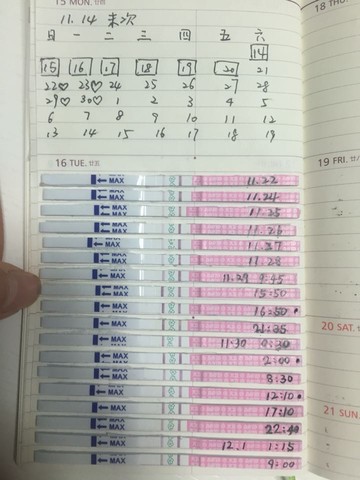 15 MON.
11.14 来次
日 一 二 三 四 五 六
14
15 16 17 18 19 20 21
22♡ 23♡ 24 25 26 27 28
29♡ 30♡ 1 2 3 4 5
6 7 8 9 10 11 12
13 14 15 16 17 18 19
16 TUE.
MAX 11.22
MAX 11.24
MAX 11.25
MAX 11.26
MAX 11.27
MAX 11.28
MAX 11.29 9:45
MAX 15:50
MAX 16:50
MAX 21:35
MAX 11.30 9:30
MAX 2:00
MAX 8:30
MAX 12:10
MAX 17:10
MAX 22:40
MAX 12.1 1:15
MAX 9:00
18 THU
19 FRI.
20 SAT.
21 SUN.